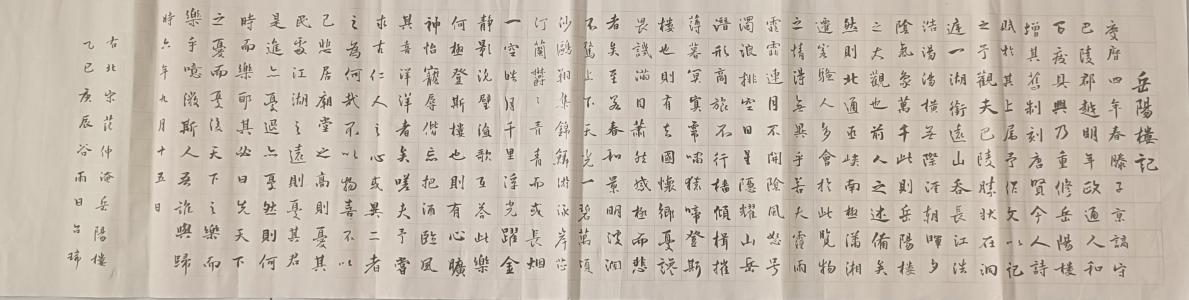 岳陽樓記
慶曆四年春滕子京謫守
巴陵郡越明年政通人和
百廢具興乃重修岳陽樓
增其舊制刻唐賢今人詩
賦於其上屬予作文以記
之予觀夫巴陵勝狀在洞
庭一湖銜遠山吞長江浩
浩湯湯橫無際涯朝暉夕
陰氣象萬千此則岳陽樓
之大觀也前人之述備矣
然則北通巫峽南極瀟湘
遷客騷人多會於此覽物
之情得無異乎若夫霪雨
霏霏連月不開陰風怒号
濁浪排空日星隱耀山岳
潛形商旅不行檣傾楫摧
薄暮冥冥虎嘯猿啼登斯
樓也則有去國懷鄉憂讒
畏譏滿目蕭然感極而悲
者矣至若春和景明波瀾
不驚上下天光一碧萬頃
沙鷗翔集錦鱗游泳岸芷
汀蘭鬱〻青青而或長烟
一空皓月千里浮光躍金
静影沉璧漁歌互答此樂
何極登斯樓也則有心曠
神怡寵辱偕忘把酒臨風
其喜洋洋者矣嗟夫予嘗
求古仁人之心或異二者
之為何哉不以物喜不以
己悲居廟堂之高則憂其
民處江湖之遠則憂其君
是進亦憂退亦憂然則何
時而樂耶其必曰先天下
之憂而憂後天下之樂而
樂乎噫微斯人吾誰與歸
時六年九月十五日
右北宋范仲淹岳陽樓
乙巳庚辰谷雨日